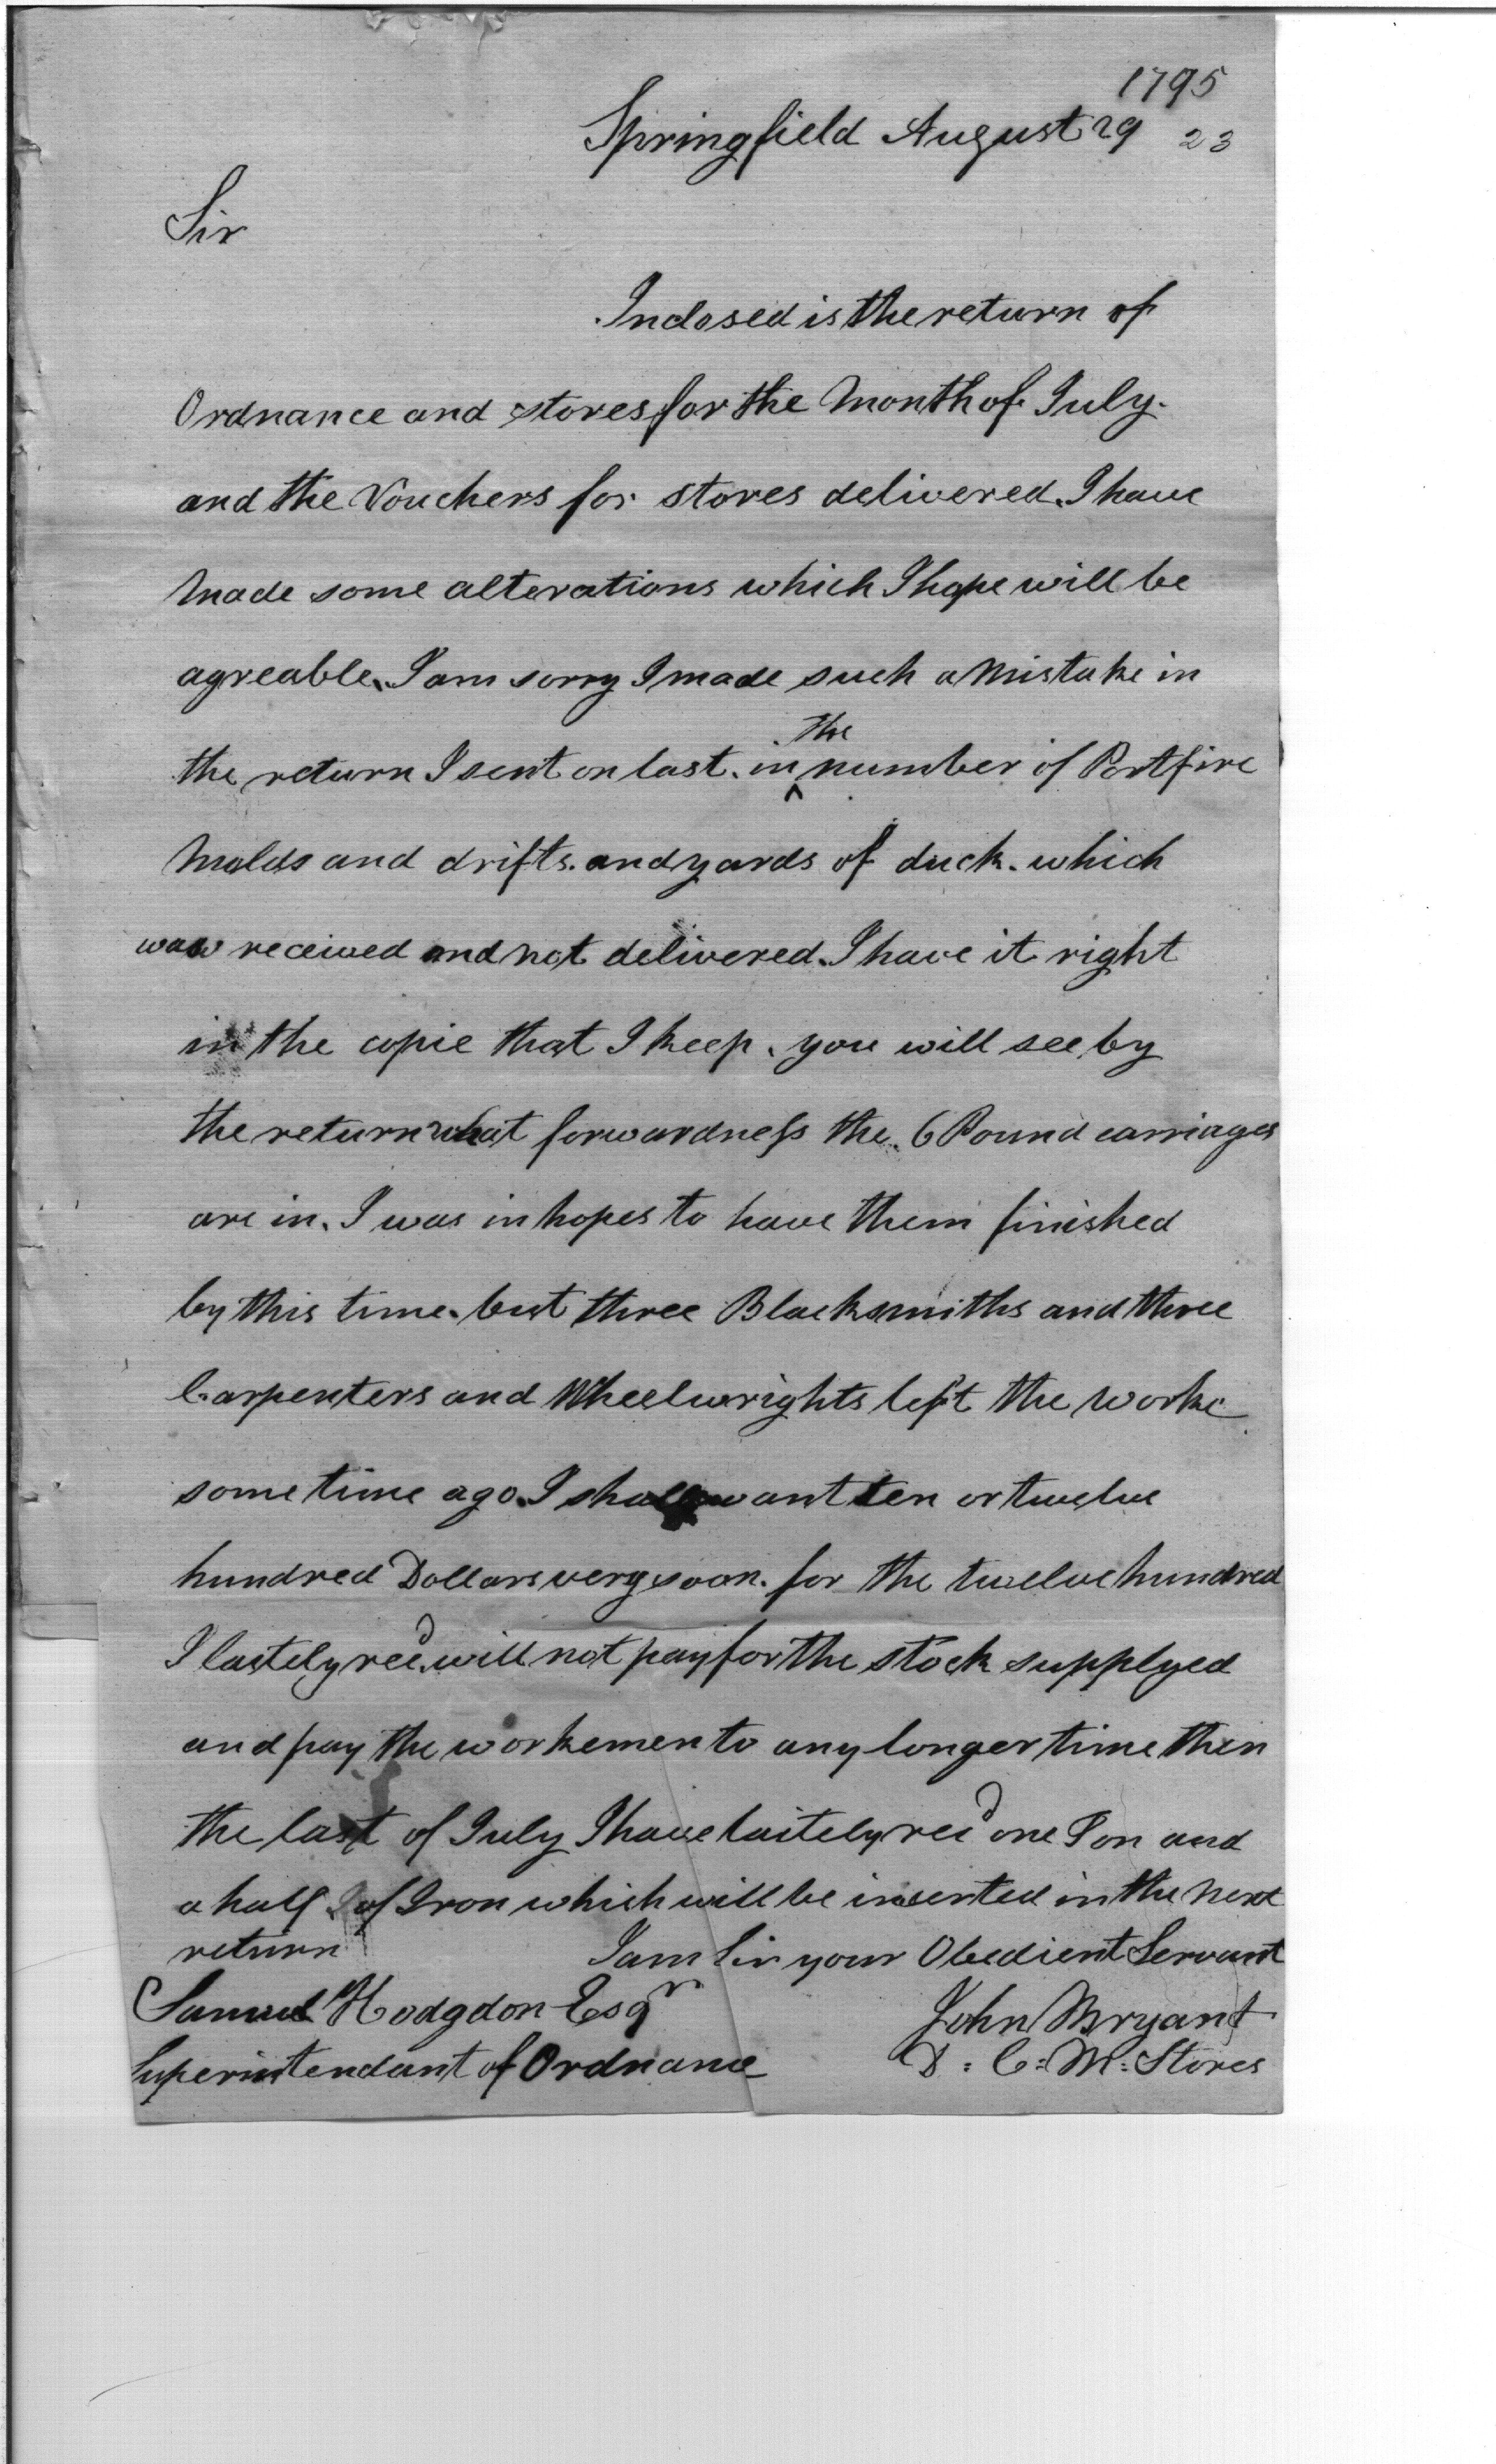 1795
Springfield August 29 23
Sir
Inclosed is the return of
Ordnance and stores for the Month of July.
and the Vouchers for stores delivered. I have
made some alterations which I hope will be
agreable. I am sorry I made such a Mistake in
the return I sent on last. in the number of Portfire
Molds and drifts. and yards of duck. which
was received and not delivered. I have it right
in the copie that I keep. you will see by
the return what forwardness the 6 Pound carriages
are in. I was in hopes to have them finished
by this time. but three Blacksmiths and three
Carpenters and Wheelwrights left the worke
some time ago. I shall want ten or twelve
hundred Dollars very soon. for the twelve hundred
I lastely rec'd will not pay for the stock supplyed
and pay the workemen to any longer time then
the last of July I have laitely rec'd one Ton and
a half of Iron which will be inserted in the next
return I am Sir your Obedient Servant
Samuel Hodgdon Esqr John Bryant
Superintendant of Ordnance D : C : M : Stores